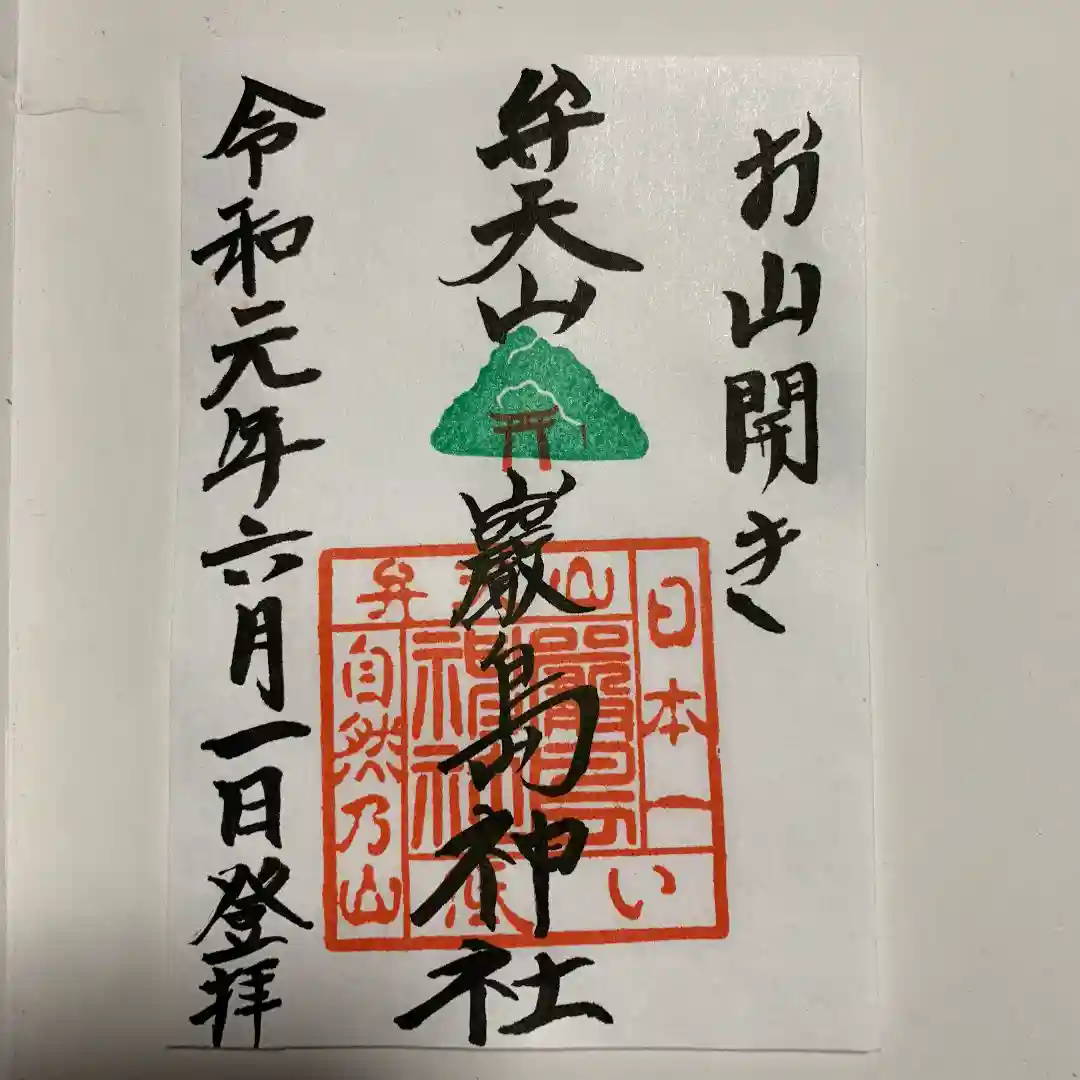 お山開き
弁天山
巖島神社
令和元年六月一日登拝
弁天山
日本一
い
自然乃山